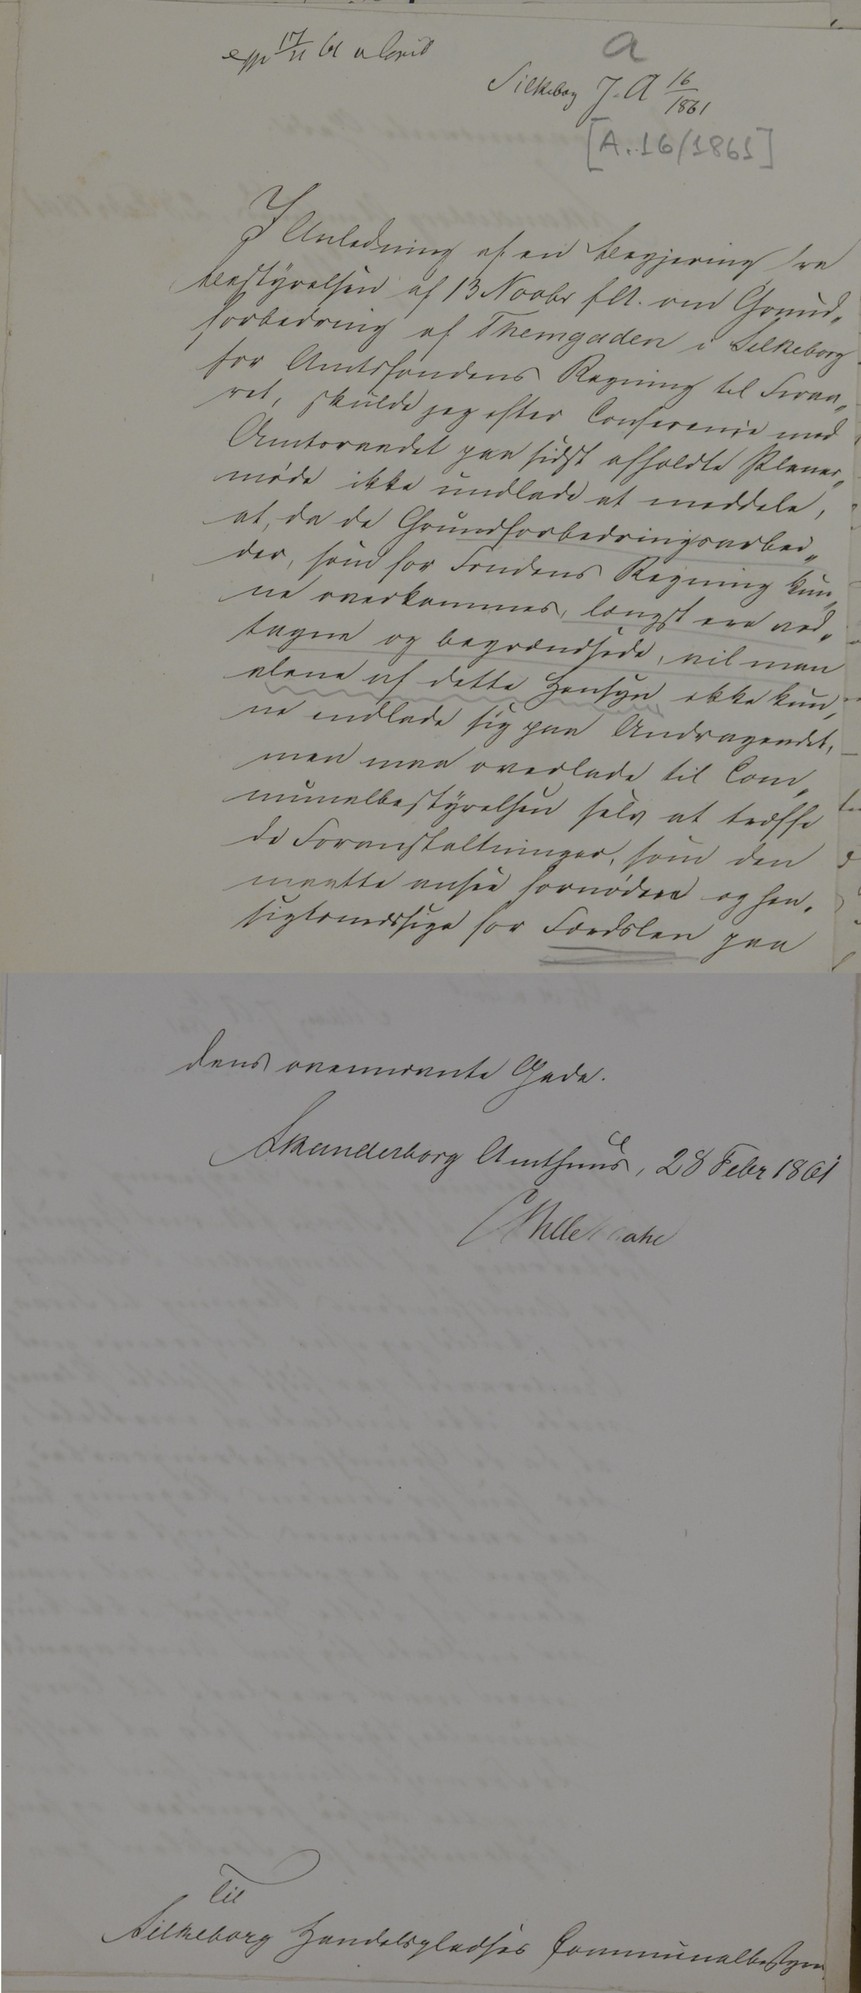 a
Silkeborg J. A 16/1861
[A. 16/1861]
I Anledning af en Begjering fra
Bestyrelsen af 13 Novbr f. A. om Grund„
forbedring af Themgaden i Silkeborg
for Amtsfondens Regning til Foraa„
ret, skulde jeg efter Conference med
Amtsraadet paa sidst afholdte Plenar„
møde ikke undlade at meddele,
at, da de Grundforbedringsarbei„
der, som for Fondens Regning kun„
ne overkommes, længst ere ved„
tagne og begrændsede, vil man
alene af dette Hensyn ikke kun„
ne indlade sig paa Andragendet,
men maa overlade til Com„
munalbestyrelsen selv at træffe
de Foranstaltninger, som den
maatte ansee fornødne og hen„
sigtsmæssige for Færdslen paa
dens ovennævnte Gade.
Skanderborg Amthuus, 28 Febr 1861
Til
Silkeborg Handelspladses Communalbestyre